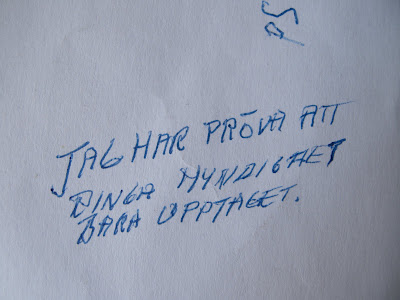 JAG HAR PRÖVA ATT
RINGA MYNDIGHET
BARA UPPTAGET.